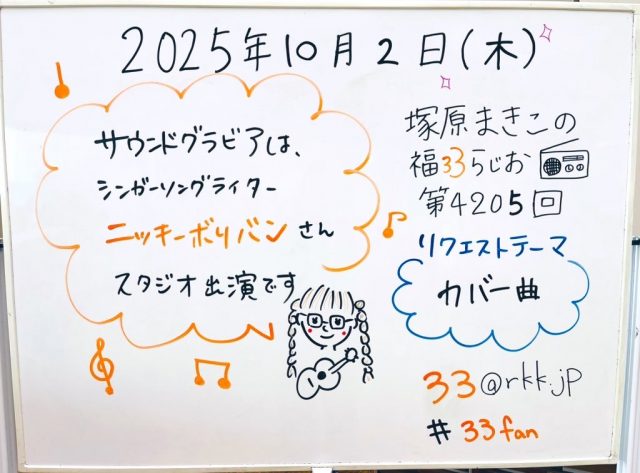 2025年10月2日(木)
サウンドグラビアは、
シンガーソングライター
ニッキーボリバンさん
スタジオ出演です
塚原まきこの
福33らじお
第4205回
リクエストテーマ
カバー曲
33@rkk.jp
#33fan